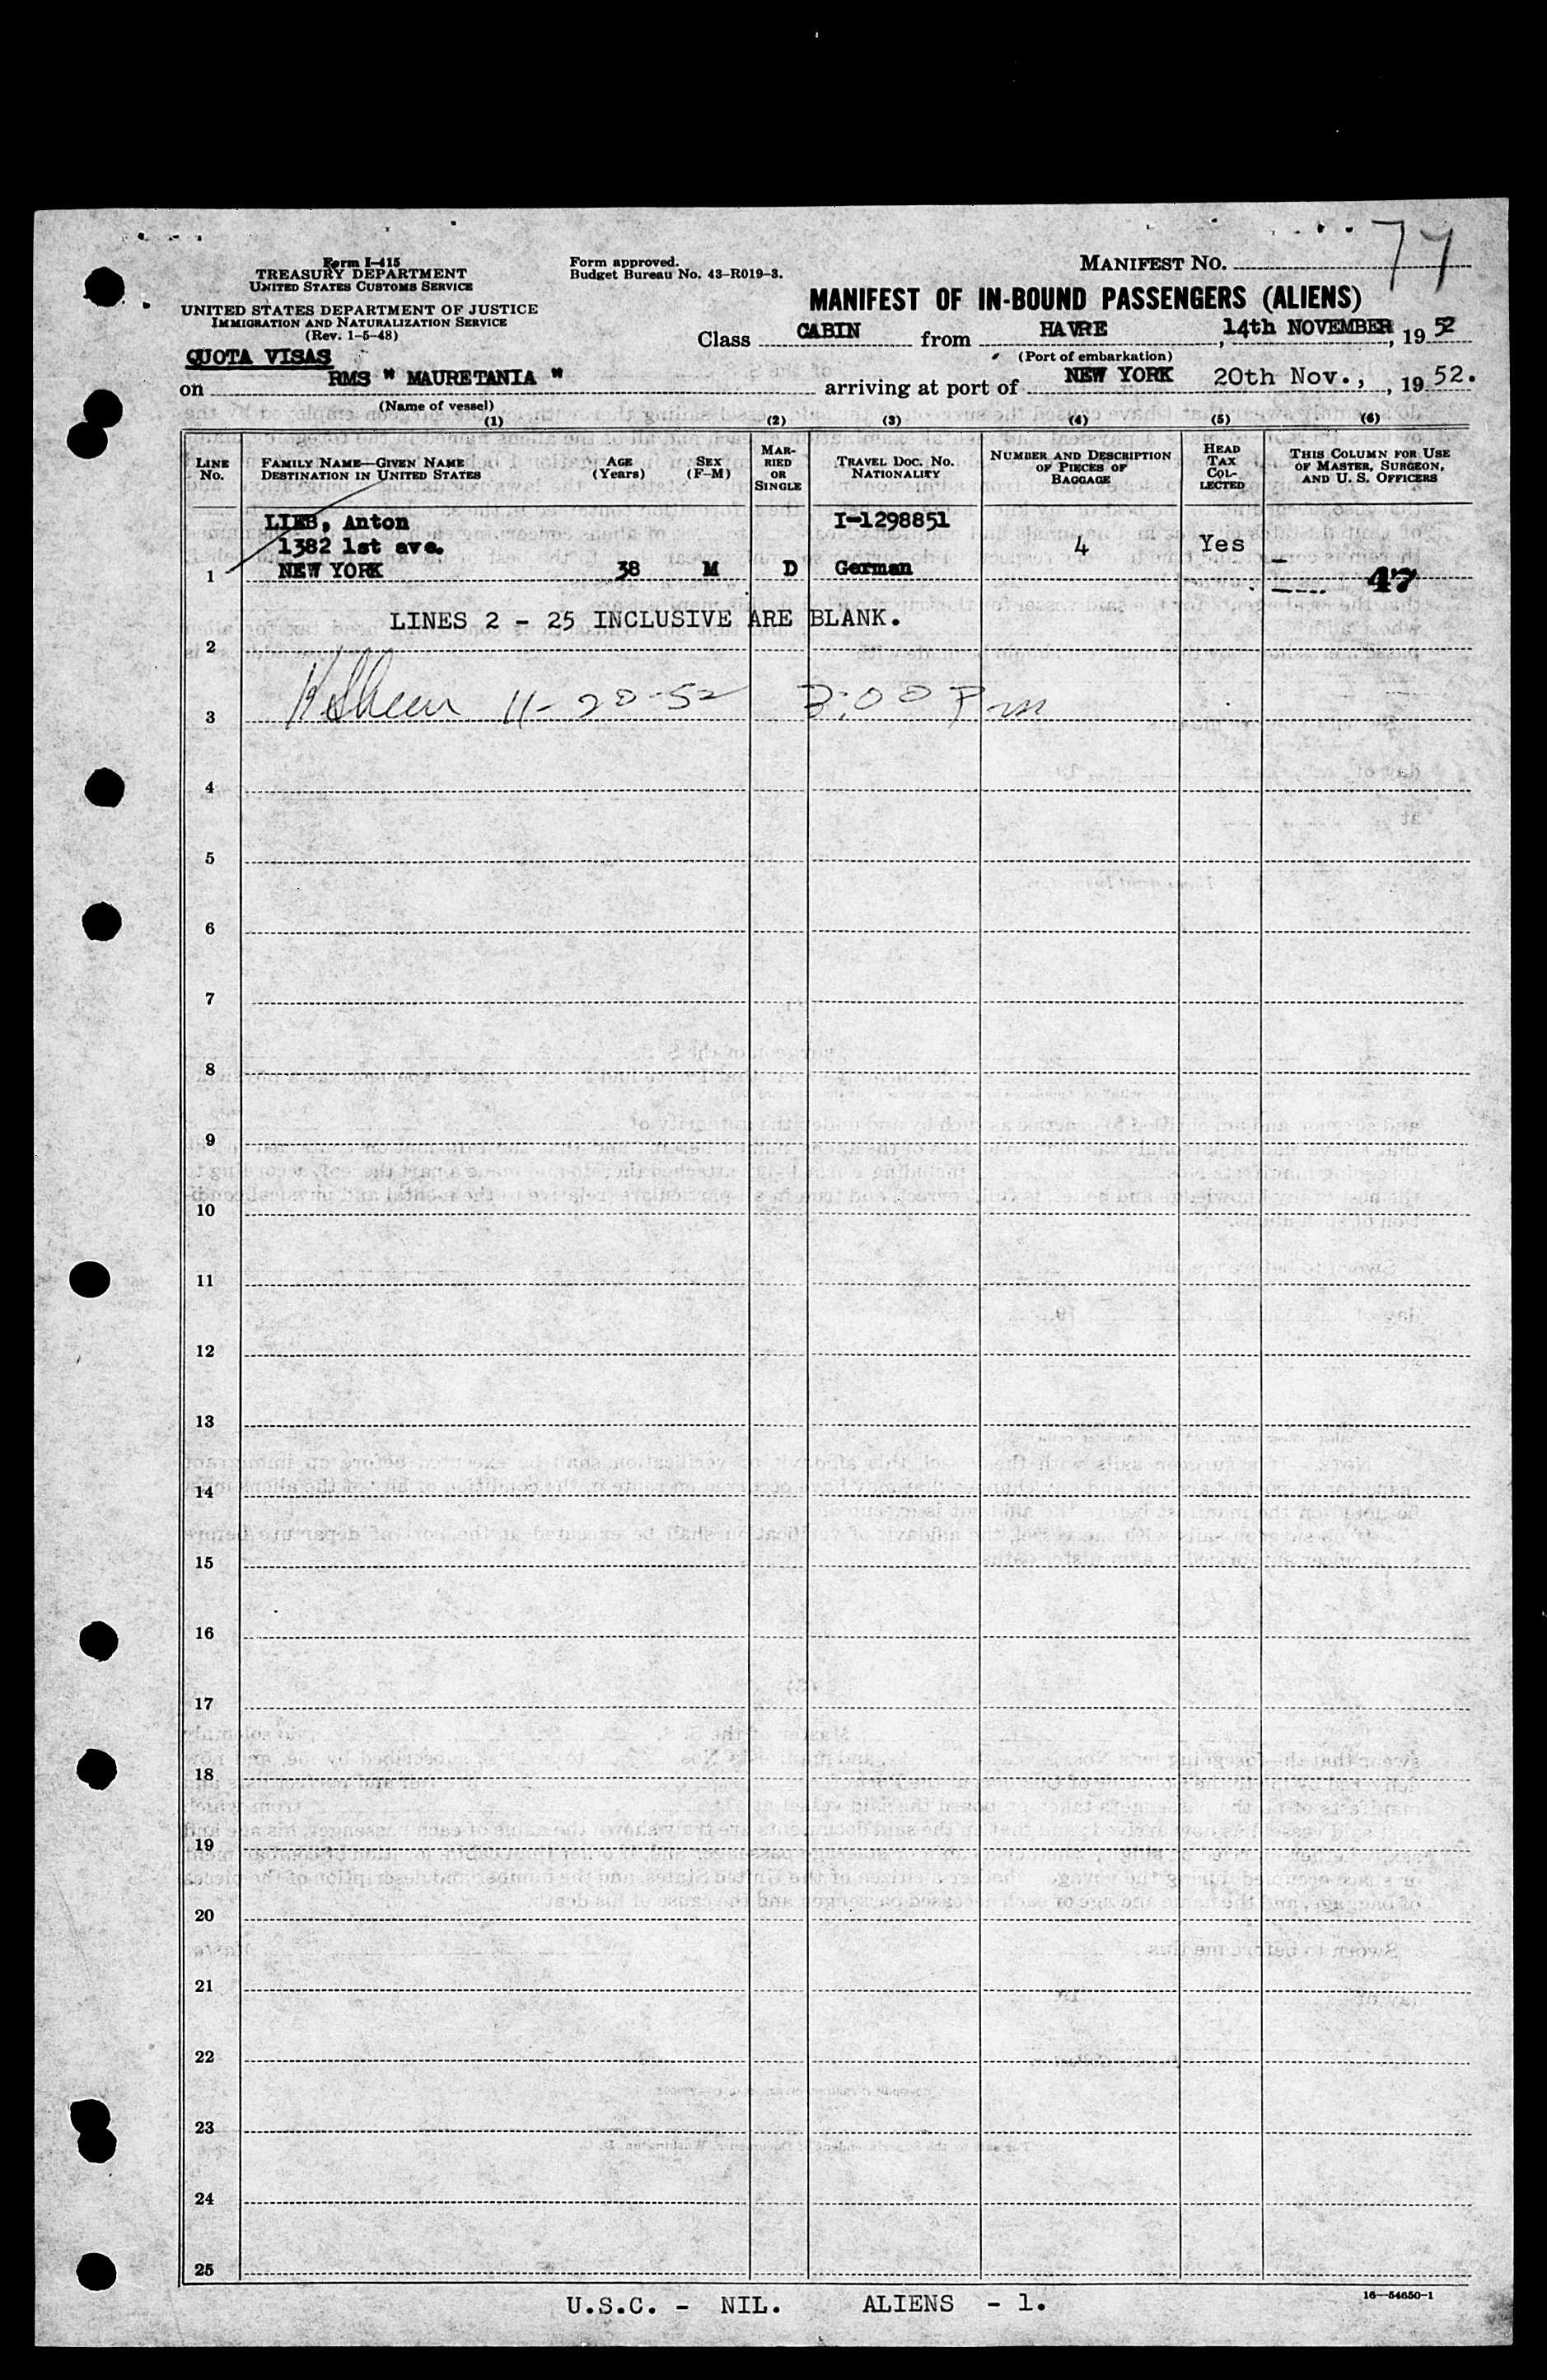 77
Form I-415
TREASURY DEPARTMENT
UNITED STATES CUSTOMS SERVICE
UNITED STATES DEPARTMENT OF JUSTICE
IMMIGRATION AND NATURALIZATION SERVICE
(Rev. 1-5-48)
Form approved.
Budget Bureau No. 43-R019-3.
MANIFEST NO.
MANIFEST OF IN-BOUND PASSENGERS (ALIENS)
Class CABIN from HAVRE, 14th NOVEMBER, 1952
(Port of embarkation)
QUOTA VISAS
on RMS " MAURETANIA " arriving at port of NEW YORK 20th Nov., , 1952.
(Name of vessel)
(1) (2) (3) (4) (5) (6)
LINE No. FAMILY NAME—GIVEN NAME DESTINATION IN UNITED STATES AGE (Years) SEX (F-M) MARRIED OR SINGLE TRAVEL DOC. NO. NATIONALITY NUMBER AND DESCRIPTION OF PIECES OF BAGGAGE HEAD TAX COLLECTED THIS COLUMN FOR USE OF MASTER, SURGEON, AND U. S. OFFICERS
LIEB, Anton I-1298851
1382 1st ave. 4 Yes
1 NEW YORK 38 M D German 47
LINES 2 - 25 INCLUSIVE ARE BLANK.
2
3 11-20-52 3:00 Pm
4
5
6
7
8
9
10
11
12
13
14
15
16
17
18
19
20
21
22
23
24
25
U.S.C. - NIL. ALIENS - 1.
16-54650-1